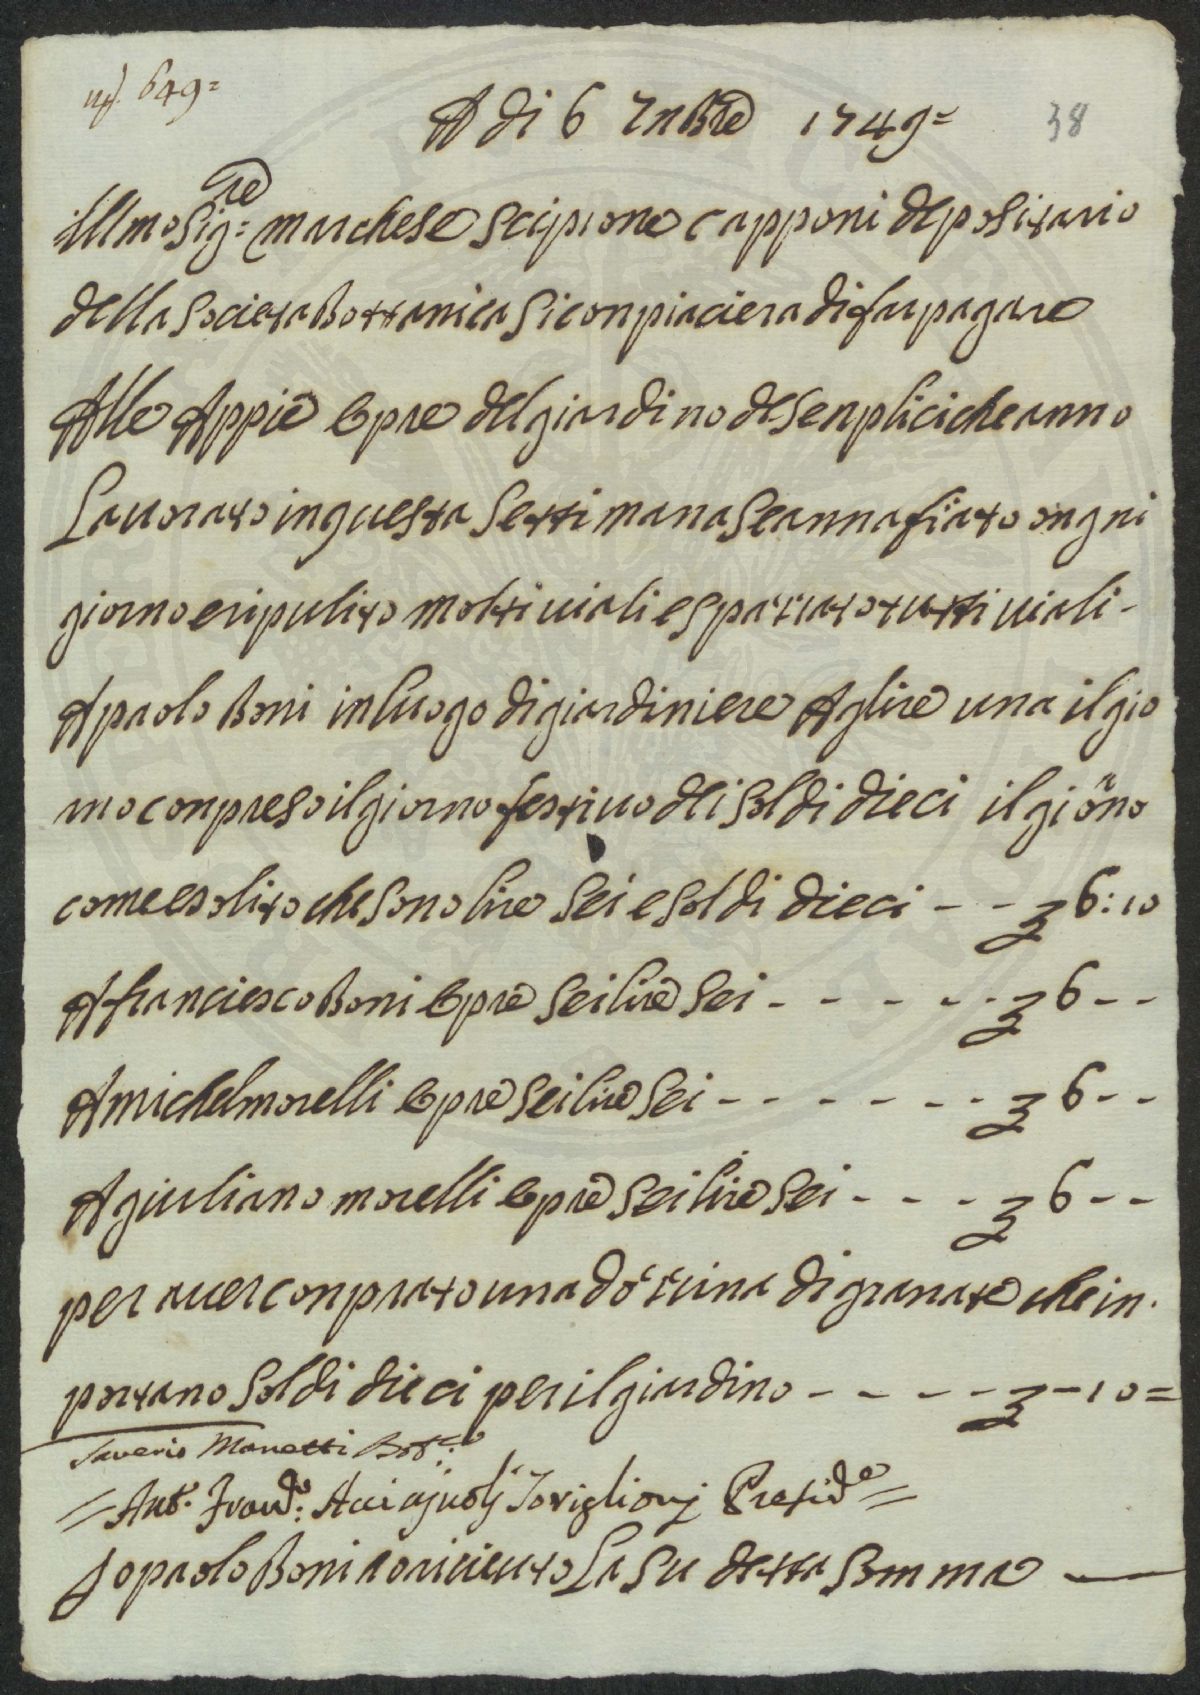 649=
A di 6 7nbre 1749=
38
illmo Sig:re marchese Scipione capponi depositario
della Societa Bottanica Si conpiaciera di far pagare
Alle Appie Opre del giardino de Senplici che anno
Lauorato in questa Settimana Se annafiato ongni
giorno e ripulito molti uiali e spazzato tutti uiali-
A paolo Boni in luogo di giardiniere A lire una il gio
rno conpreso il giorno festiuo de i Soldi dieci il giorno
come e solito che Sono lire Sei e Soldi dieci - - £ 6:10
A franciesco Boni Opre Sei lire Sei - - - - - £ 6 - -
A michel morelli Opre Sei lire Sei - - - - - - - £ 6 - -
A giuliano morelli Opre Sei lire Sei - - - - £ 6 - -
per auer conprato una dozzina di granate che in.
portano Soldi dieci per il giardino - - - - - £ - 10 =
Saverio Manetti
= Ant. Franc: Acciajuoli Torriglioni Presid.e =
Jo paolo Boni ao riceuto La Su detta Somma —